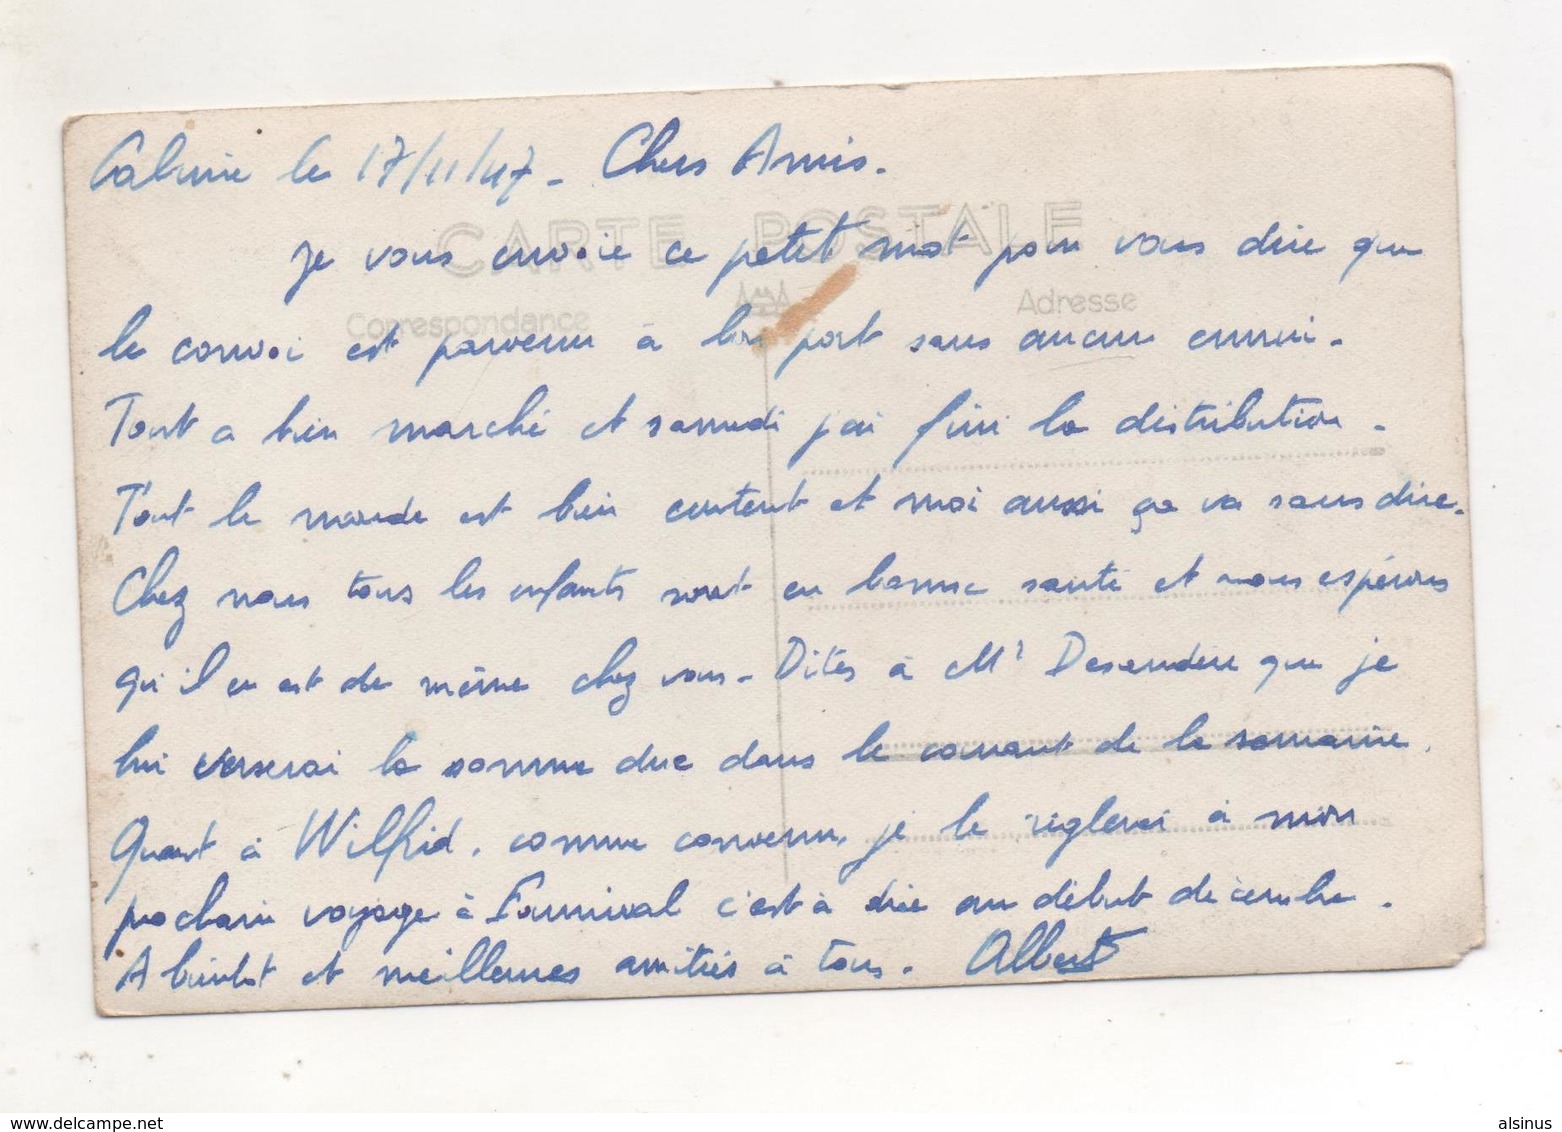 le 17/11/47 - Chers Amis.
CARTE POSTALE
Je vous envoie ce petit mot pour vous dire que
Correspondance
Adresse
le convoi est parvenu à bon port sans aucun ennui.
Tout a bien marché et samedi j'ai fini la distribution.
Tout le monde est bien content et moi aussi ça va sans dire.
Chez nous tous les enfants sont en bonne santé et nous espérons
qu'il en est de même chez vous - Dites à Mr que je
lui verserai la somme due dans le courant de la semaine.
Quant à Wilfrid, comme convenu, je le réglerai à mon
prochain voyage à Fournival c'est à dire au début décembre.
A bientôt et meilleures amitiés à tous. Albert
delcampe.net
alsinus